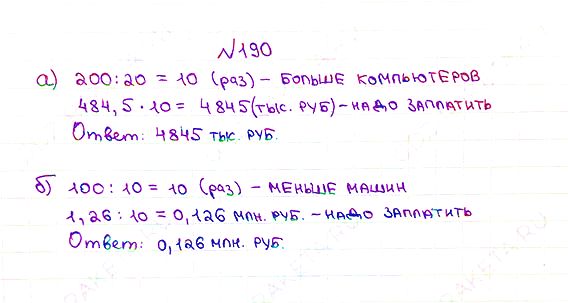 №190
а) 200:20 = 10 (раз) – БОЛЬШЕ КОМПЬЮТЕРОВ
484,5·10 = 4845(тыс. РУБ)–НАДО ЗАПЛАТИТЬ
Ответ: 4845 тыс. РУБ.
б) 100:10 = 10 (раз) – МЕНЬШЕ МАШИН
1,26:10 = 0,126 МЛН. РУБ. –НАДО ЗАПЛАТИТЬ
Ответ: 0,126 МЛН. РУБ.